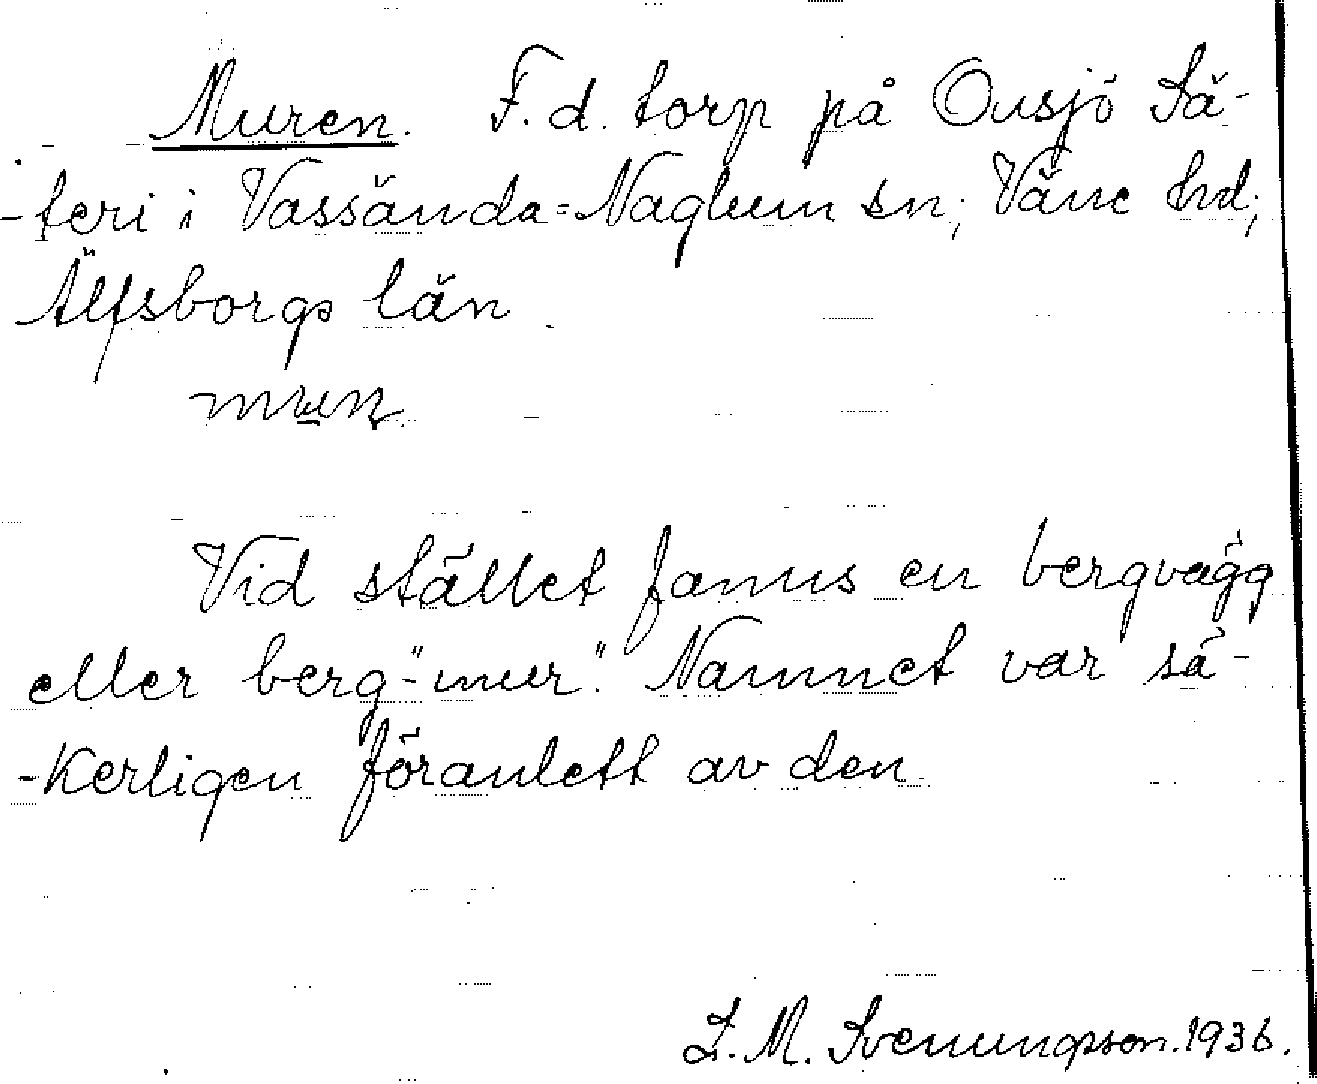 Muren. F.d. torp på Onsjö Sä-
-teri i Vassända=Naglum sn; Väne hd;
Älfsborgs län.

Vid stället fanns en bergvägg
eller berg-"mur". Namnet var sä-
-kerligen föranlett av den
L. M. Svenungsson. 1936.